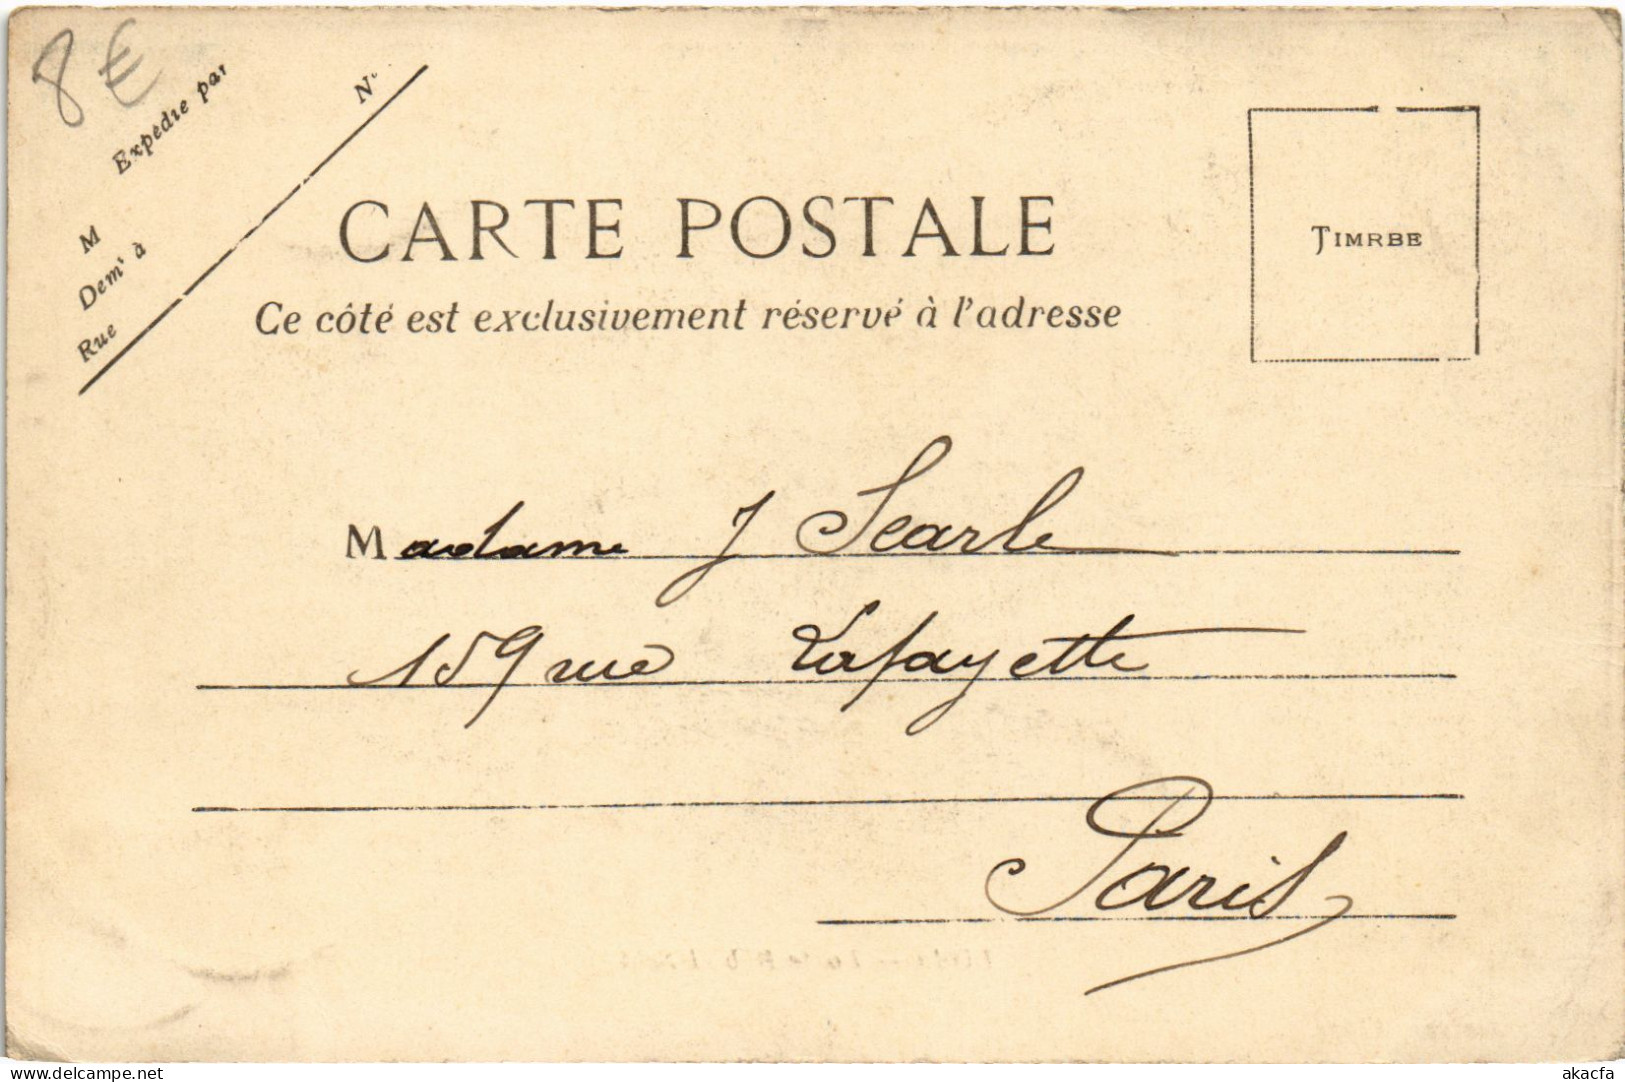 8 €
Expédie par
N°
M
Dem' à
Rue
CARTE POSTALE
Ce côté est exclusivement réservé à l'adresse
TIMRBE
Madame J Searle
159 rue Lafayette
Paris
akacfa